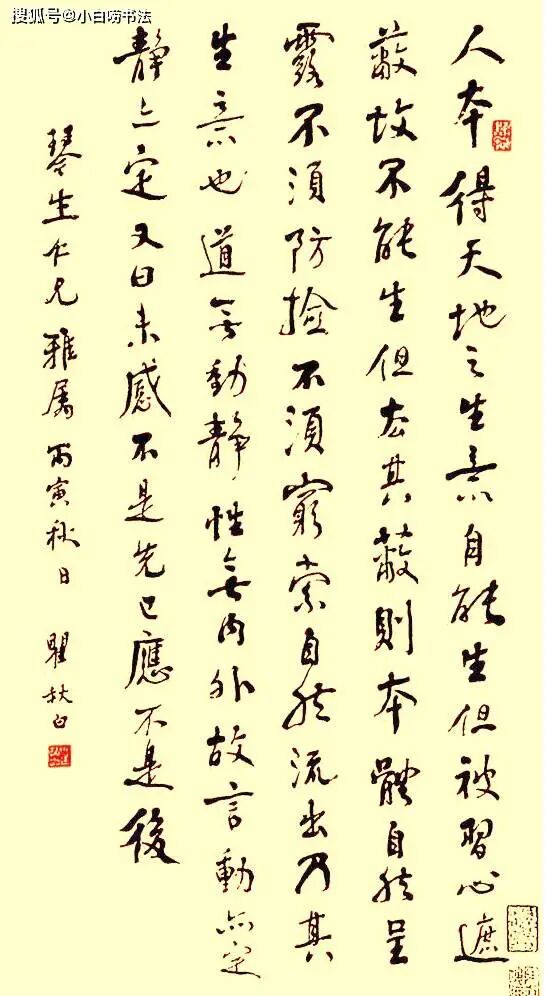 搜狐号@小白唠书法
人本得天地之生意自能生但被習心遮
蔽故不能生但去其蔽則本體自然呈
露不須防撿不須窮索自然流出乃其
生意也道無動靜性無內外故言動亦定
靜亦定又曰未感不是先已應不是後
琴生仁兄雅属丙寅秋日 瞿秋白